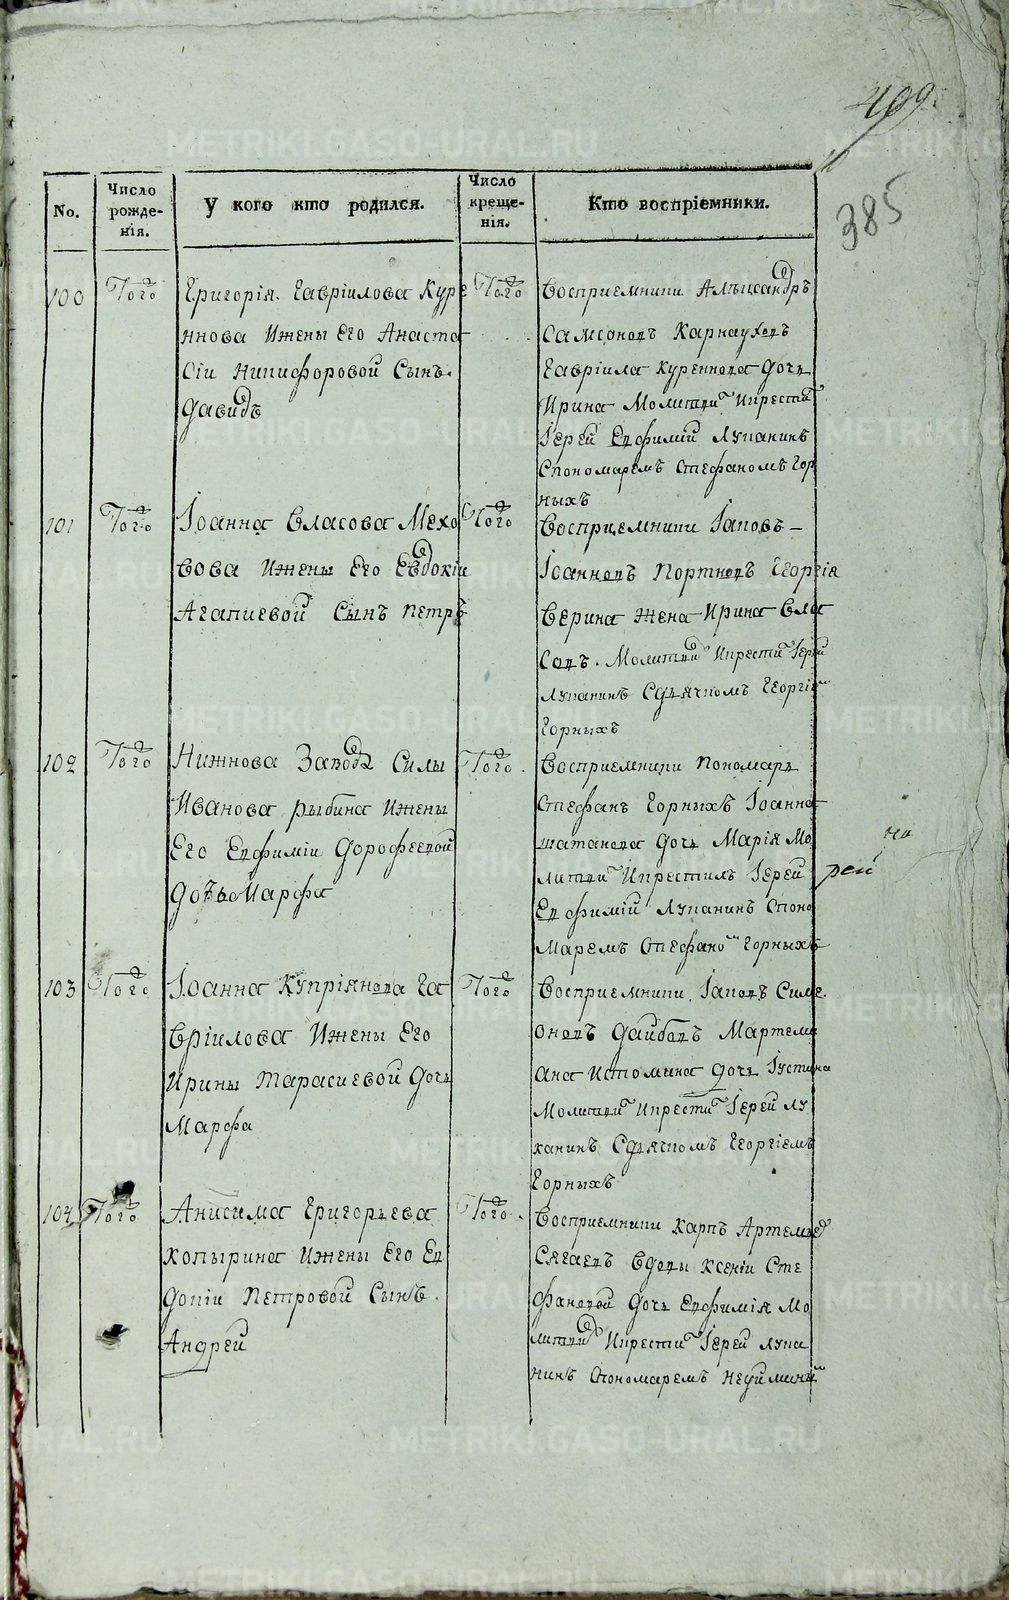 409.
385
No.
Число рожде-нія.
У кого кто родился.
Число креще-нія.
Кто воспріемники.
100
Того
Григорія Гавріилова Куре
ннова Ижены Его Анаста
сіи Никифоровой Сынъ.
Давидъ
Того
Восприемники Алѣксандръ
Самсоновъ Карнауховъ
Гавріила Куреннова Дочь
Ирина Молитви Икрести
Іерей Евфимій Луканинъ
Спономаремъ Стефаномъ Гор
ныхъ
101
Того
Іоанна Власова Мехо
вова Ижены Его Евдокіи
Агапиевой Сынъ Петръ
Того
Восприемники Іаковъ –
Іоанновъ Портновъ Георгія
Верина Жена Ирина Вла
сова. Молитви Икрести Іерей
Луканинъ Сдьячкомъ Георгіем
Горныхъ
102
Того
Нижнова Завода Силы
Иванова Рыбина Ижены
Его Евфиміи Дорофеевой
Дочь Марфа
Того.
Восприемники Пономарь
Стефанъ Горныхъ Іоанна
шатанова Дочь Марія Мо
литви Икрестилъ Іерей
Евфимій Луканинъ Споно
Маремъ Стефаном Горныхъ
103
Того
Іоанна Купріянова Га
вріилова Ижены Его
Ирины Тарасиевой Дочь
Марфа
Того
Восприемники Іаковъ Симе
оновъ Дайбовъ Мартеми
ана Истомина дочь Іустина
Молитви Икрести Іерей Лу
канинъ Сдьячкомъ Георгіемъ
Горныхъ
104
Того
Анисима Григорьева
Копырина Ижены Его Ев
докіи Петровой Сынъ.
Андрей
Того.
Восприемники Карпъ Артемьев
Сягаевъ Вдовы Ксеніи Сте
фановой Дочь Евфимія Мо
литви Икрести Іерей Лука
нинъ Спономаремъ Неуймины
рей
METRIKI.GASO-URAL.RU